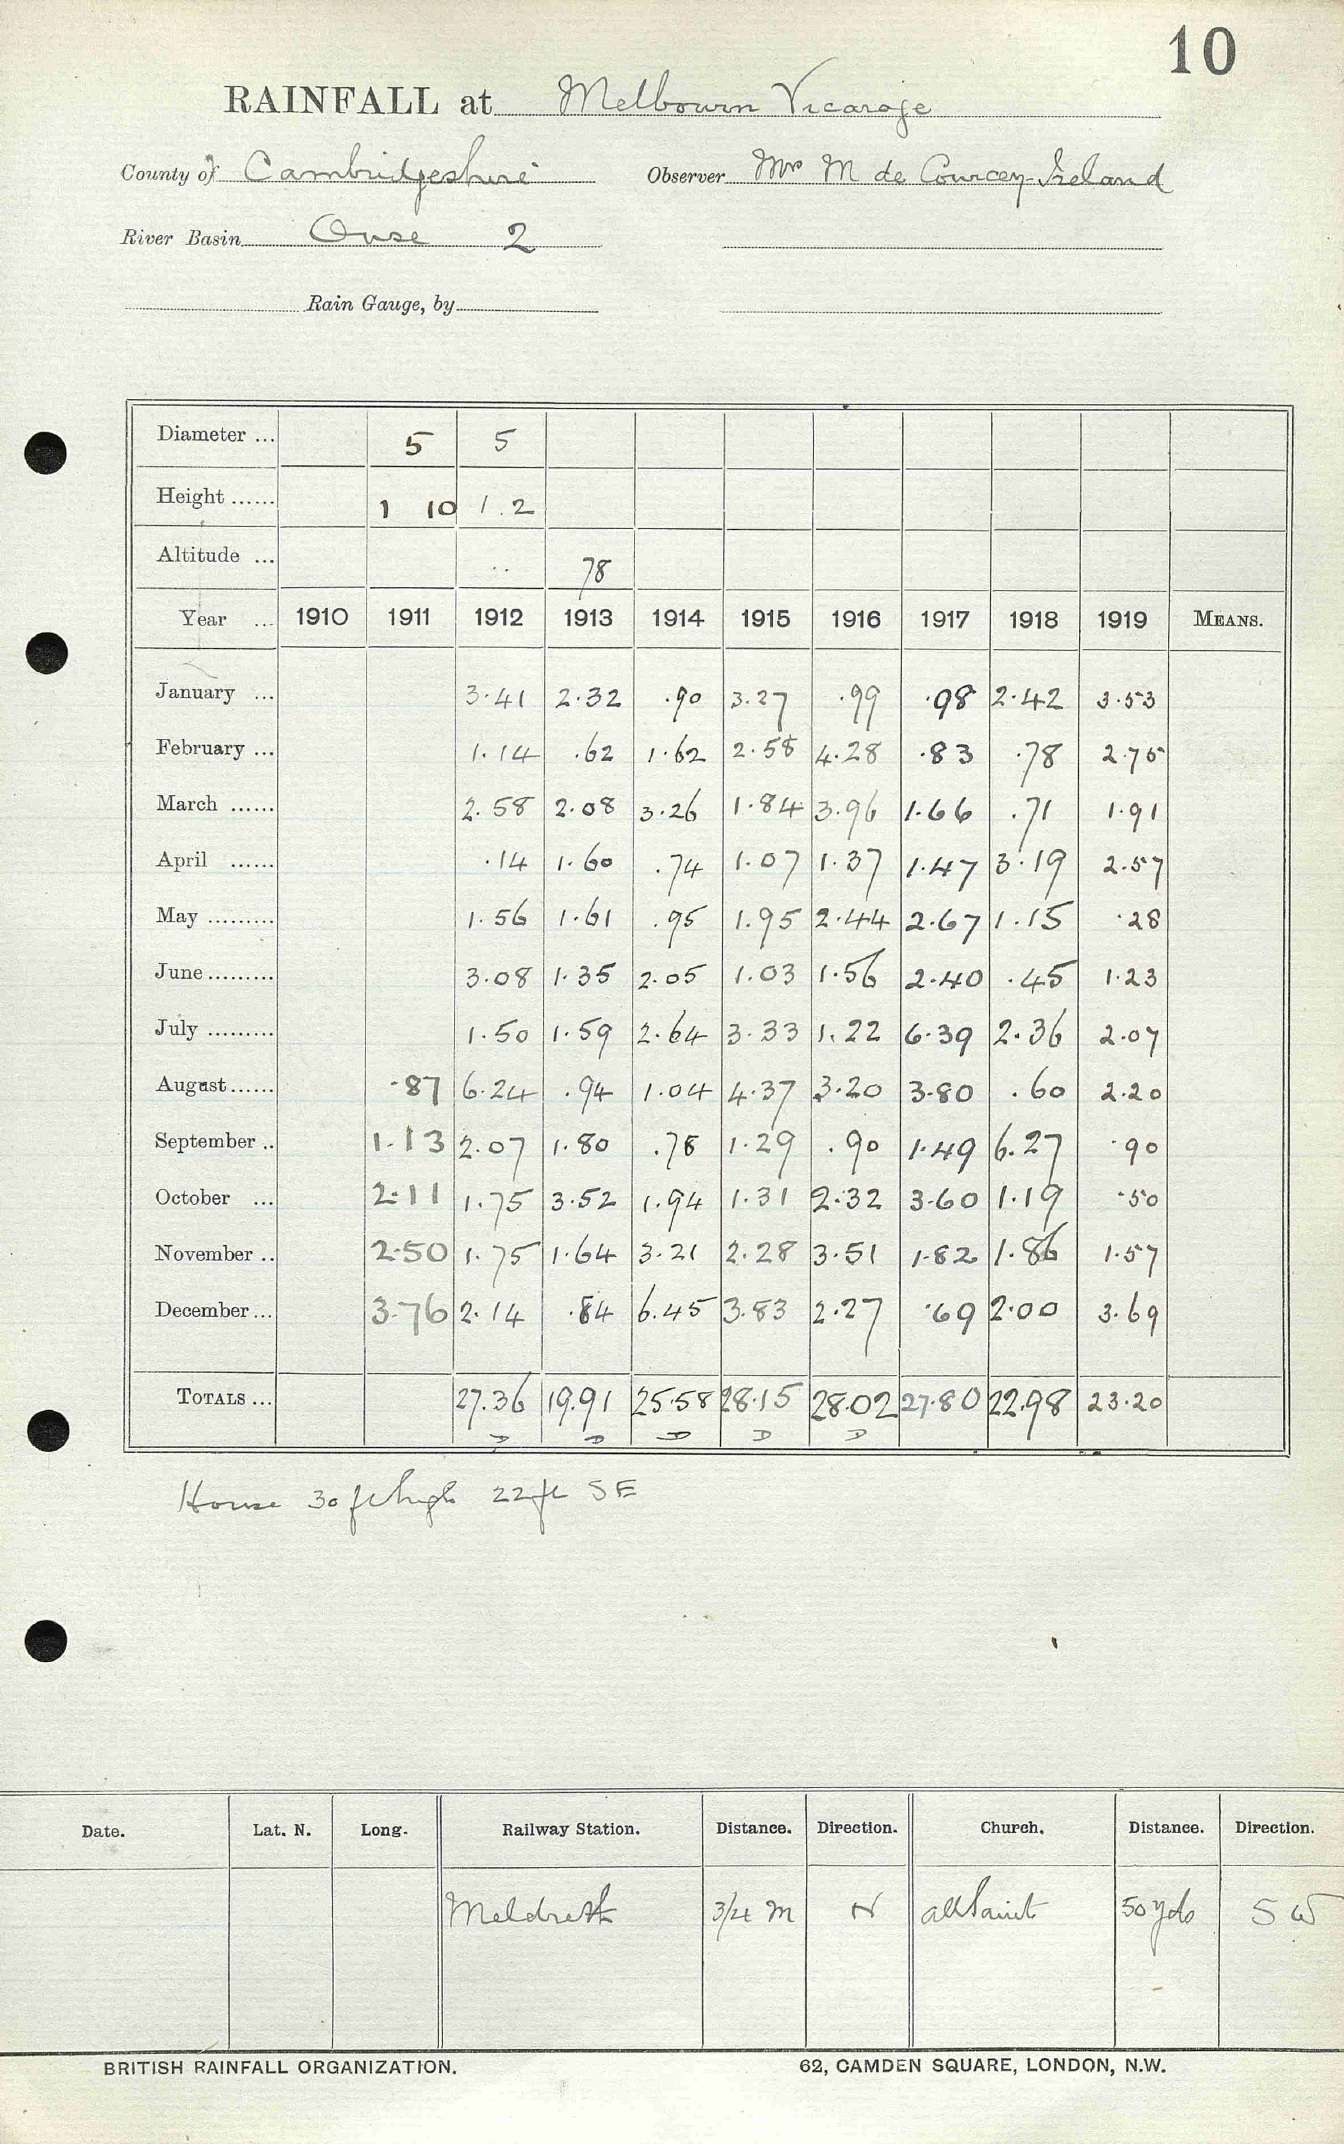 10
RAINFALL at Melbourn Vicarage
County of Cambridgeshire Observer Mrs M de Courcey-Ireland
River Basin Ouse 2
Rain Gauge, by
Diameter ... 5 5
Height ...... 1 10 1.2
Altitude ... .. 78
Year ... 1910 1911 1912 1913 1914 1915 1916 1917 1918 1919 MEANS.
January ... 3.41 2.32 .90 3.27 .99 .98 2.42 3.53
February ... 1.14 .62 1.62 2.58 4.28 .83 .78 2.75
March ...... 2.58 2.08 3.26 1.84 3.96 1.66 .71 1.91
April ...... .14 1.60 .74 1.07 1.37 1.47 3.19 2.57
May ......... 1.56 1.61 .95 1.95 2.44 2.67 1.15 .28
June ......... 3.08 1.35 2.05 1.03 1.56 2.40 .45 1.23
July ......... 1.50 1.59 2.64 3.33 1.22 6.39 2.36 2.07
August ...... .87 6.24 .94 1.04 4.37 3.20 3.80 .60 2.20
September .. 1.13 2.07 1.80 .78 1.29 .90 1.49 6.27 .90
October ... 2.11 1.75 3.52 1.94 1.31 2.32 3.60 1.19 .50
November .. 2.50 1.75 1.64 3.21 2.28 3.51 1.82 1.86 1.57
December ... 3.76 2.14 .84 6.45 3.83 2.27 .69 2.00 3.69
TOTALS ... 27.36 19.91 25.58 28.15 28.02 27.80 22.98 23.20
D D D D D
House 30 ft high 22 ft SE
Date. Lat. N. Long. Railway Station. Distance. Direction. Church. Distance. Direction.
Meldreth 3/4 m N all Saint 50 yds SW
BRITISH RAINFALL ORGANIZATION. 62, CAMDEN SQUARE, LONDON, N.W.